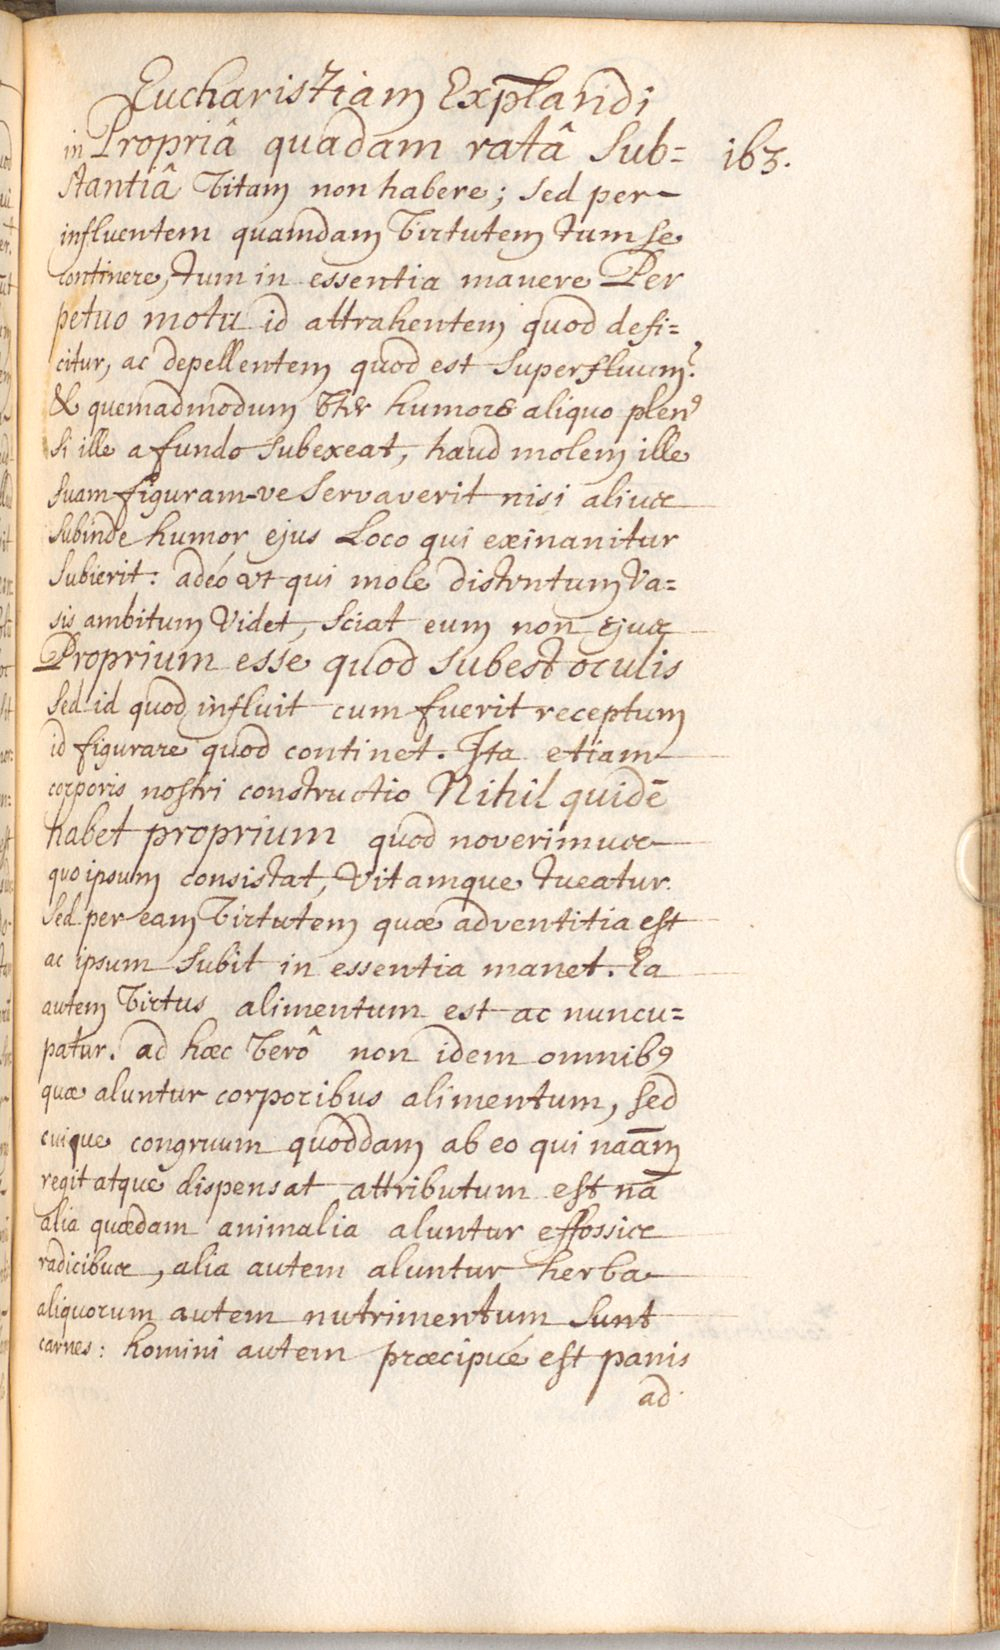 Eucharistiam Explandi
in Propriâ quadam ratâ Sub=
163.
stantiâ Vitam non habere; sed per
influentem quamdam Virtutem tum se
continere, tum in essentia manere Per
petuo motu id attrahentem quod defi=
citur, ac depellentem quod est superfluum:
& quemadmodum humore aliquo plen9
si ille a fundo subexeat, haud molem ille
suam figuram-ve servaverit nisi alius
subinde humor ejus Loco qui exinanitur
subierit: adeó vt qui mole distentum Va=
sis ambitum Videt, sciat eum non ejus
Proprium esse quod subest oculis
sed id quod influit cum fuerit receptum
id figurare quod continet. Ita etiam
corporis nostri constructio Nihil quidē
habet proprium quod noverimus
quo ipsum consistat, Vitamque tueatur.
sed per eam Virtutem quæ adventitia est
ac ipsum subit in essentia manet. Ea
autem Virtus alimentum est ac nuncu=
patur. ad hæc Verô non idem omnib9
quæ aluntur corporibus alimentum, sed
cuique congruum quoddam ab eo qui naām
regit atque dispensat attributum est nā
alia quædam animalia aluntur effossis
radicibus, alia autem aluntur herba
aliquorum autem nutrimentum sunt
carnes: homini autem præcipué est panis
ad